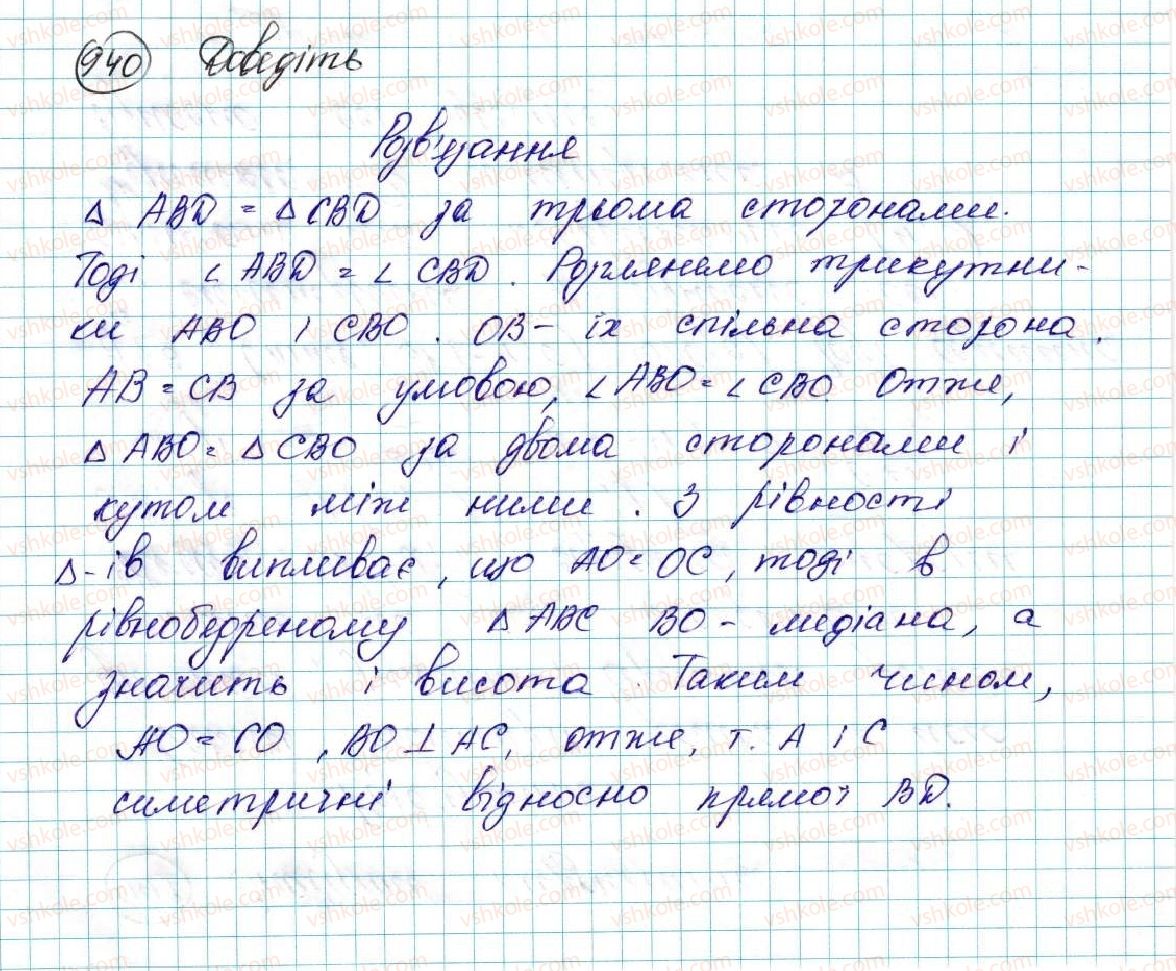 940 Доведіть
Розв'язання
Δ ABD = Δ CBD за трьома сторонами.
Тоді ∠ ABD = ∠ CBD. Розглянемо трикутни-
ки ABO і CBO. OB - їх спільна сторона.
AB = CB за умовою, ∠ ABO = ∠ CBO. Отже,
Δ ABO = Δ CBO за двома сторонами і
кутом між ними. З рівності
Δ-ів випливає, що AO = OC, тоді в
рівнобедреному Δ ABC BO - медіана, а
значить і висота. Таким чином,
AO = CO, BO ⊥ AC, отже, т. A і C
симетричні відносно прямої BD.